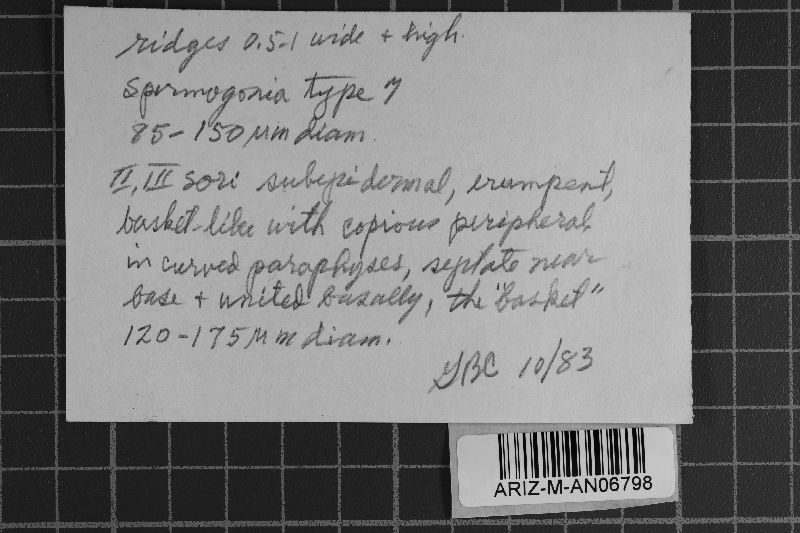 ridges 0.5-1 wide + high.
Spermogonia type 7
85-150 µm diam.
II, III sori subepidermal, erumpent,
basket-like with copious peripheral
incurved paraphyses, septate near
base + united basally, the "basket"
120-175 µm diam.
GBC 10/83
ARIZ-M-AN06798